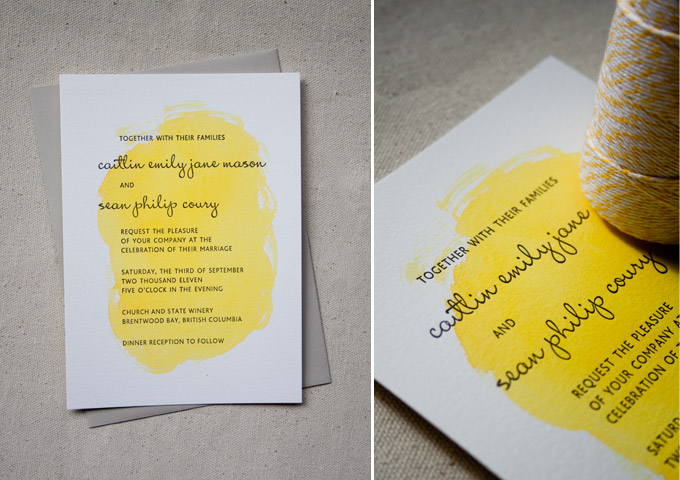 TOGETHER WITH THEIR FAMILIES
caitlin emily jane mason
AND
sean philip coury
REQUEST THE PLEASURE
OF YOUR COMPANY AT THE
CELEBRATION OF THEIR MARRIAGE
SATURDAY, THE THIRD OF SEPTEMBER
TWO THOUSAND ELEVEN
FIVE O'CLOCK IN THE EVENING
CHURCH AND STATE WINERY
BRENTWOOD BAY, BRITISH COLUMBIA
DINNER RECEPTION TO FOLLOW
TOGETHER WITH THEIR FAMILIES
caitlin emily jane
AND
sean philip coury
REQUEST THE PLEASURE
OF YOUR COMPANY AT
CELEBRATION OF